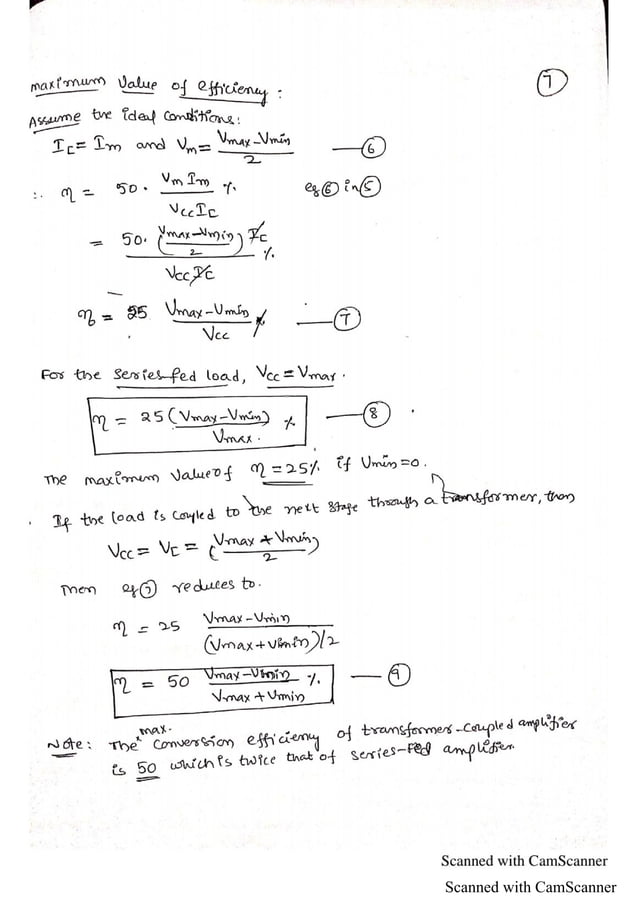 7
maximum value of efficiency :
Assume the ideal conditions:
Ic = Im and Vm = (Vmax - Vmin)/2 — 6
∴ η = 50 · (Vm Im)/(Vcc Ic) % eq 6 in 5
= 50 · ((Vmax - Vmin)/2) Ic / (Vcc Ic) %
η = 25 (Vmax - Vmin)/Vcc % — 7
For the series-fed load, Vcc = Vmax.
η = 25 (Vmax - Vmin)/Vmax. % — 8
The maximum value of η = 25% if Vmin = 0.
If the load is coupled to the next stage through a transformer, then
Vcc = Vc = (Vmax + Vmin)/2
Then eq 7 reduces to.
η = 25 (Vmax - Vmin)/((Vmax + Vmin)/2)
η = 50 (Vmax - Vmin)/(Vmax + Vmin) % — 9
Note: The max. conversion efficiency of transformer-coupled amplifier
is 50 which is twice that of series-fed amplifier.
Scanned with CamScanner
Scanned with CamScanner